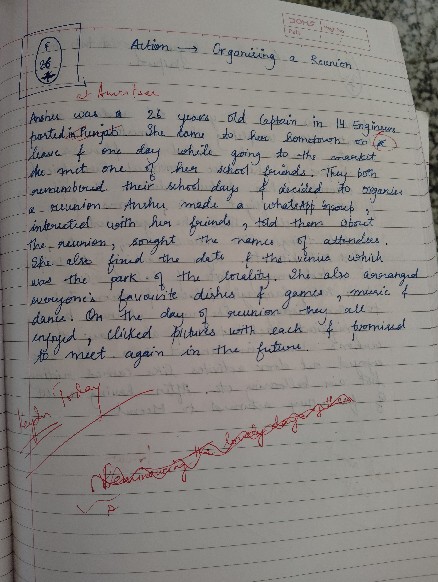 F
26
+
Action → Organising a Reunion
at Amritsar
Anshu was a 26 years old Captain in 14 Engineers
posted in Punjab. She came to her hometown on a
leave & one day while going to the market
she met one of her school friends. They both
remembered their school days & decided to organise
a reunion Anshu made a whatsApp group,
interacted with her friends, told them about
the reunion, sought the names of attendees.
She also fixed the date & the venue which
was the park of the locality. She also arranged
everyone's favourite dishes & games, music &
dance. On the day of reunion they all
enjoyed, clicked pictures with each & promised
to meet again in the future.
Today
the lovely days